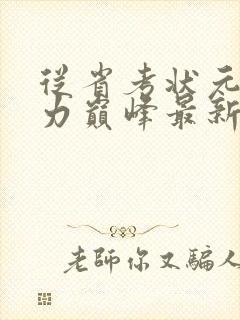 從省考狀元
力巔峰最新
老師你又騙人